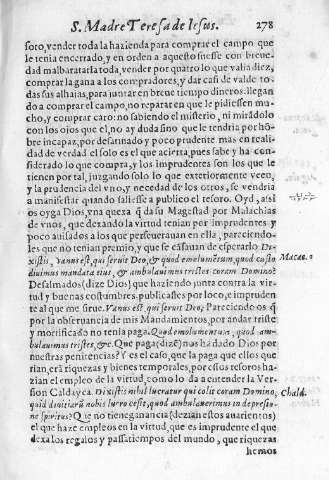 S. Madre Teresa de Iesus. 278
soro, vender toda la hazienda para comprar el campo que
le tenia encerrado, y en orden a aquesto fuesse con breue-
dad malbaratarla toda, vender por quatro lo que valia diez,
comprar la gana a los compradores, y dar casi de valde to-
das sus alhaias, para juntar en breue tiempo dineros: llegan
do a comprar el campo, no reparar en que le pidiessen mu-
cho, y comprar caro: no sabiendo el misterio, ni mirãdolo
con los ojos que el, no ay duda sino que le tendria por hõ-
bre incapaz, por desatinado y poco prudente mas en reali-
dad de verdad el solo es el que acierta, pues sabe y ha con
siderado lo que compra, y los imprudentes son los que le
tienen por tal, juzgando solo lo que exteriormente veen,
y la prudencia del vno, y necedad de los otros, se vendria
a manifestar quando saliesse a publico el tesoro. Oyd, assi
os oyga Dios, vna quexa q̃ da su Magestad por Malachias
de vnos, que dexando la virtud tenian por imprudentes y
poco auisados a los que perseuerauan en ella, pareciendo-
les que no tenian premio, y que se cãsauan de esperarlo. Di-
xistis, Vanus est, qui seruit Deo, & quod emolumẽtum, quod custo
diuimus mandata eius, & ambulauimus tristes coram Domino?
Malac. 3
Desalmados (dize Dios) que haziendo junta contra la vir-
tud y buenas costumbres, publicastes por loco, e impruden
te al que me sirue. Vanus est, qui seruit Deo, Pareciendo os q̃
por la obseruancia de mis Mandamientos, por andar triste
y mortificado no tenia paga. Quod emolumentum, quod am-
bulauimus tristes, &c. Que paga (dizẽ) nos ha dado Dios por
nuestras penitencias? Y es el caso, que la paga que ellos que
rian, erã riquezas y bienes temporales, por essos tesoros ha-
zian el empleo de la virtud, como lo da a entender la Ver-
sion Caldayca. Dixistis nihil lucratur qui colit coram Domino,
Chald.
quid diuitiarũ nobis lucro cessit, quod ambulauerimus in depressio-
ne spiritus? Que no tiene ganancia (dezian estos auarientos)
el que haze empleos en la virtud, que es imprudente el que
dexa los regalos y passatiempos del mundo, que riquezas
hemos